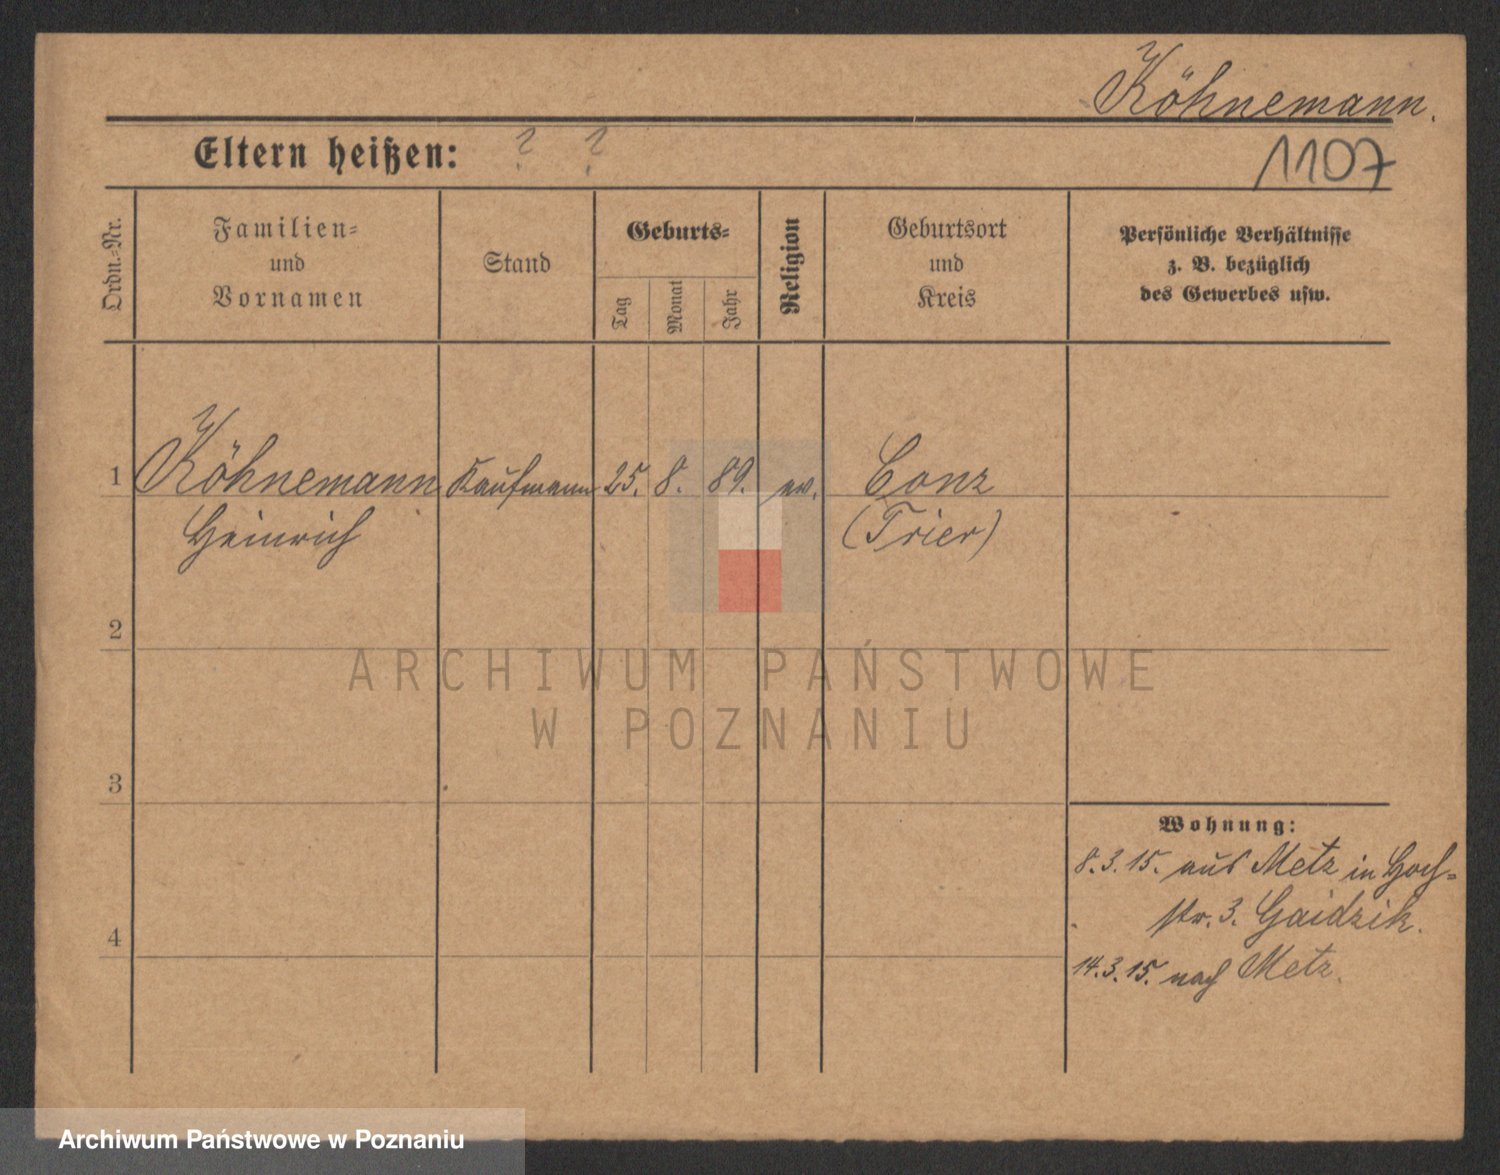 Köhnemann.
Eltern heißen: ? ?
1107
Ordn.-Nr.
Familien-
und
Vornamen
Stand
Geburts-
Tag
Monat
Jahr
Religion
Geburtsort
und
Kreis
Persönliche Verhältnisse
z. B. bezüglich
des Gewerbes usw.
1 Köhnemann Kaufmann 25. 8. 89. ev. Conz
Heinrich (Trier)
2
3
4
Wohnung:
8.3.15. aus Metz in Hoch-
str. 3. Gaidzik.
14.3.15. nach Metz.
ARCHIWUM PAŃSTWOWE
W POZNANIU
Archiwum Państwowe w Poznaniu